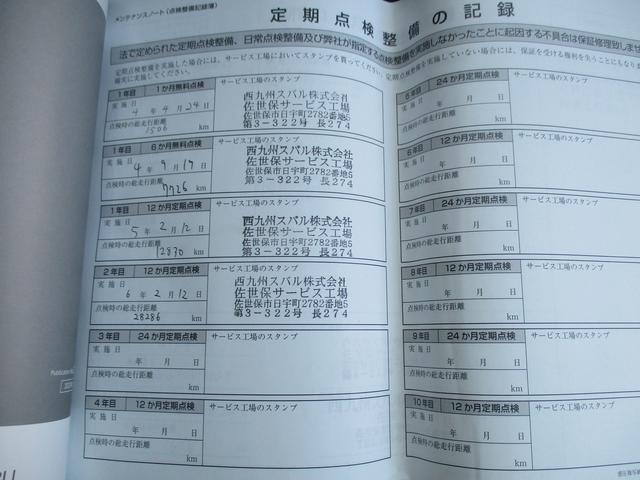 メンテナンスノート（点検整備記録簿）
定期点検整備の記録
法で定められた定期点検整備、日常点検整備及び弊社が指定する点検整備を実施しなかったことに起因する不具合は保証修理致しませ
定期点検整備を実施した場合には、サービス工場においてスタンプを貰ってください。定期点検整備を実施していない場合には、保証を受ける権利を失うことにもなりま
確実に実施してください。
1年目 1か月無料点検 サービス工場のスタンプ
実施日
4年4月24日
点検時の総走行距離
1506 km
西九州スバル株式会社
佐世保サービス工場
佐世保市日宇町2782番地5
第3-322号 長274
1年目 6か月無料点検 サービス工場のスタンプ
実施日
4年9月17日
点検時の総走行距離
7726 km
西九州スバル株式会社
佐世保サービス工場
佐世保市日宇町2782番地5
第3-322号 長274
1年目 12か月定期点検 サービス工場のスタンプ
実施日
5年2月12日
点検時の総走行距離
12870 km
西九州スバル株式会社
佐世保サービス工場
佐世保市日宇町2782番地5
第3-322号 長274
2年目 12か月定期点検 サービス工場のスタンプ
実施日
6年2月12日
点検時の総走行距離
28286 km
西九州スバル株式会社
佐世保サービス工場
佐世保市日宇町2782番地5
第3-322号 長274
3年目 24か月定期点検 サービス工場のスタンプ
実施日
年 月 日
点検時の総走行距離
km
4年目 12か月定期点検 サービス工場のスタンプ
実施日
年 月 日
点検時の総走行距離
km
5年目 24か月定期点検 サービス工場のスタンプ
実施日
年 月 日
点検時の総走行距離
km
6年目 12か月定期点検 サービス工場のスタンプ
実施日
年 月 日
点検時の総走行距離
km
7年目 24か月定期点検 サービス工場のスタンプ
実施日
年 月 日
点検時の総走行距離
km
8年目 12か月定期点検 サービス工場のスタンプ
実施日
年 月 日
点検時の総走行距離
km
9年目 24か月定期点検 サービス工場のスタンプ
実施日
年 月 日
点検時の総走行距離
km
10年目 12か月定期点検 サービス工場のスタンプ
実施日
年 月 日
点検時の総走行距離
km